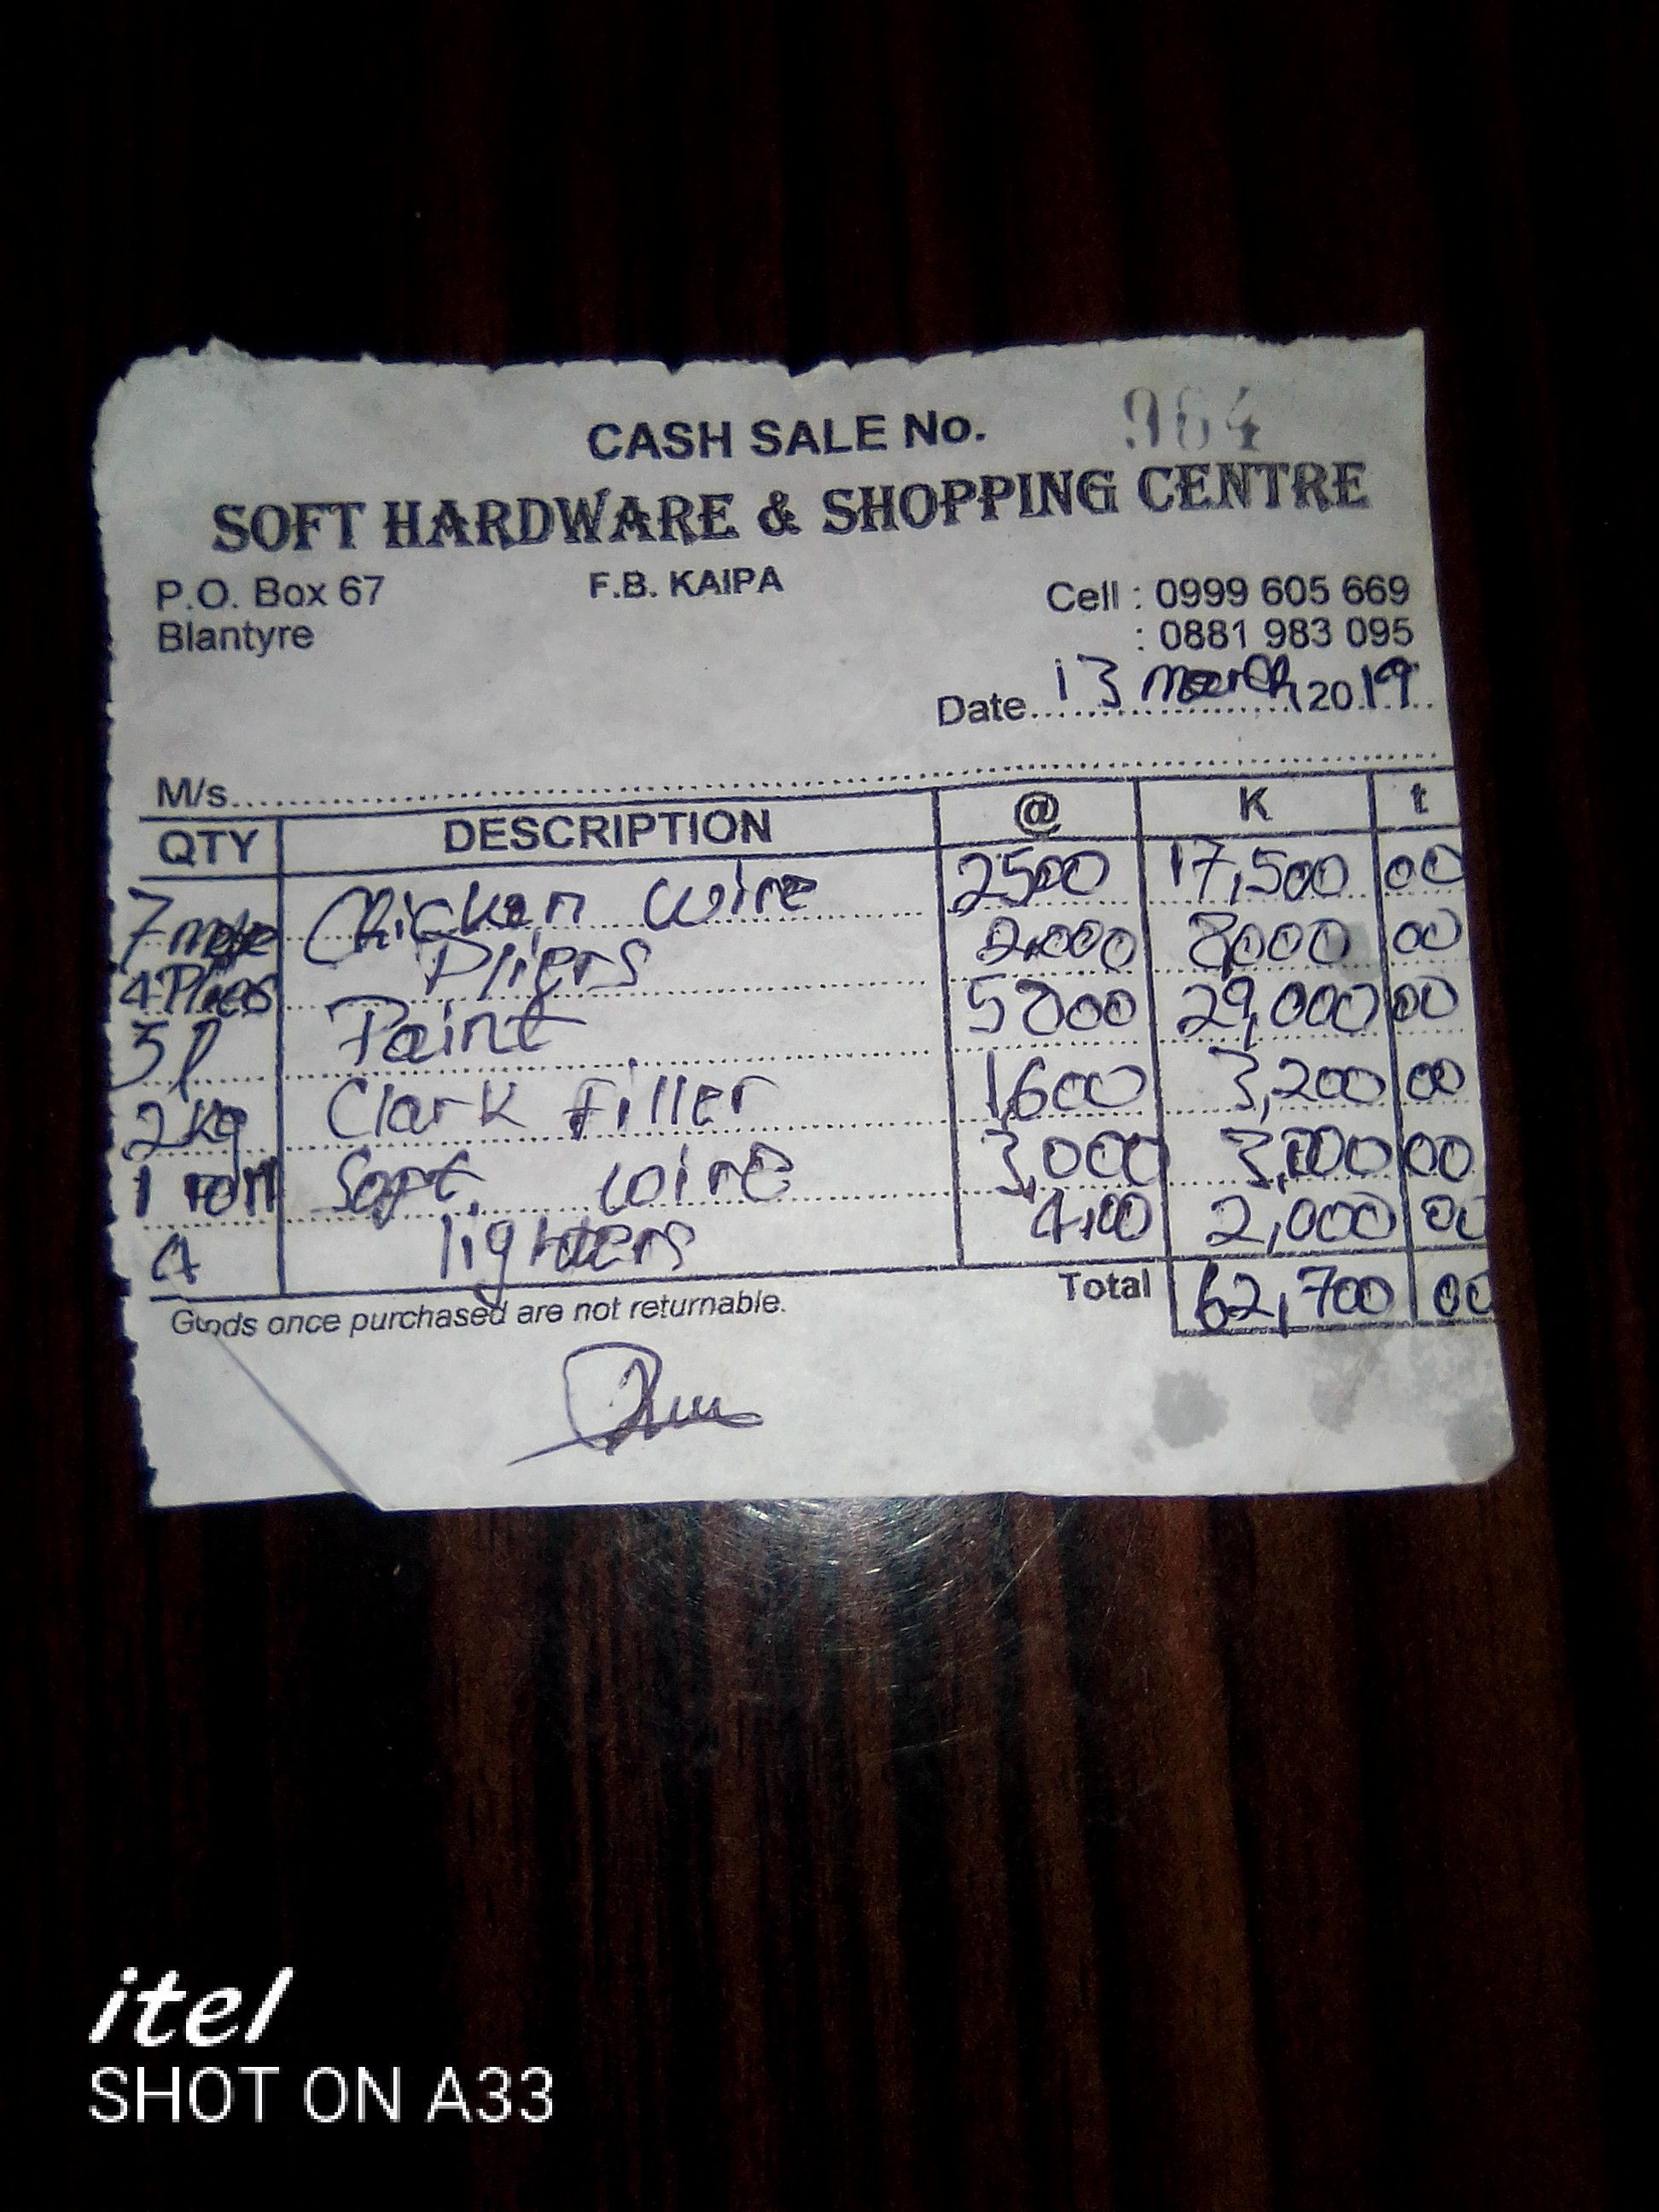 CASH SALE No. 964
SOFT HARDWARE & SHOPPING CENTRE
P.O. Box 67 F.B. KAIPA Cell : 0999 605 669
Blantyre : 0881 983 095
Date 13 march 2019
M/s
QTY DESCRIPTION @ K t
7 Chicken wire 2500 17,500 00
4 Pliers 2,000 8000 00
5l Paint 5800 29,000 00
2kg Clark Filler 1,600 3,200 00
1 roll Soft wire 3,000 3,000 00
lighters 2,000 00
Goods once purchased are not returnable. Total 62,700 00
itel
SHOT ON A33